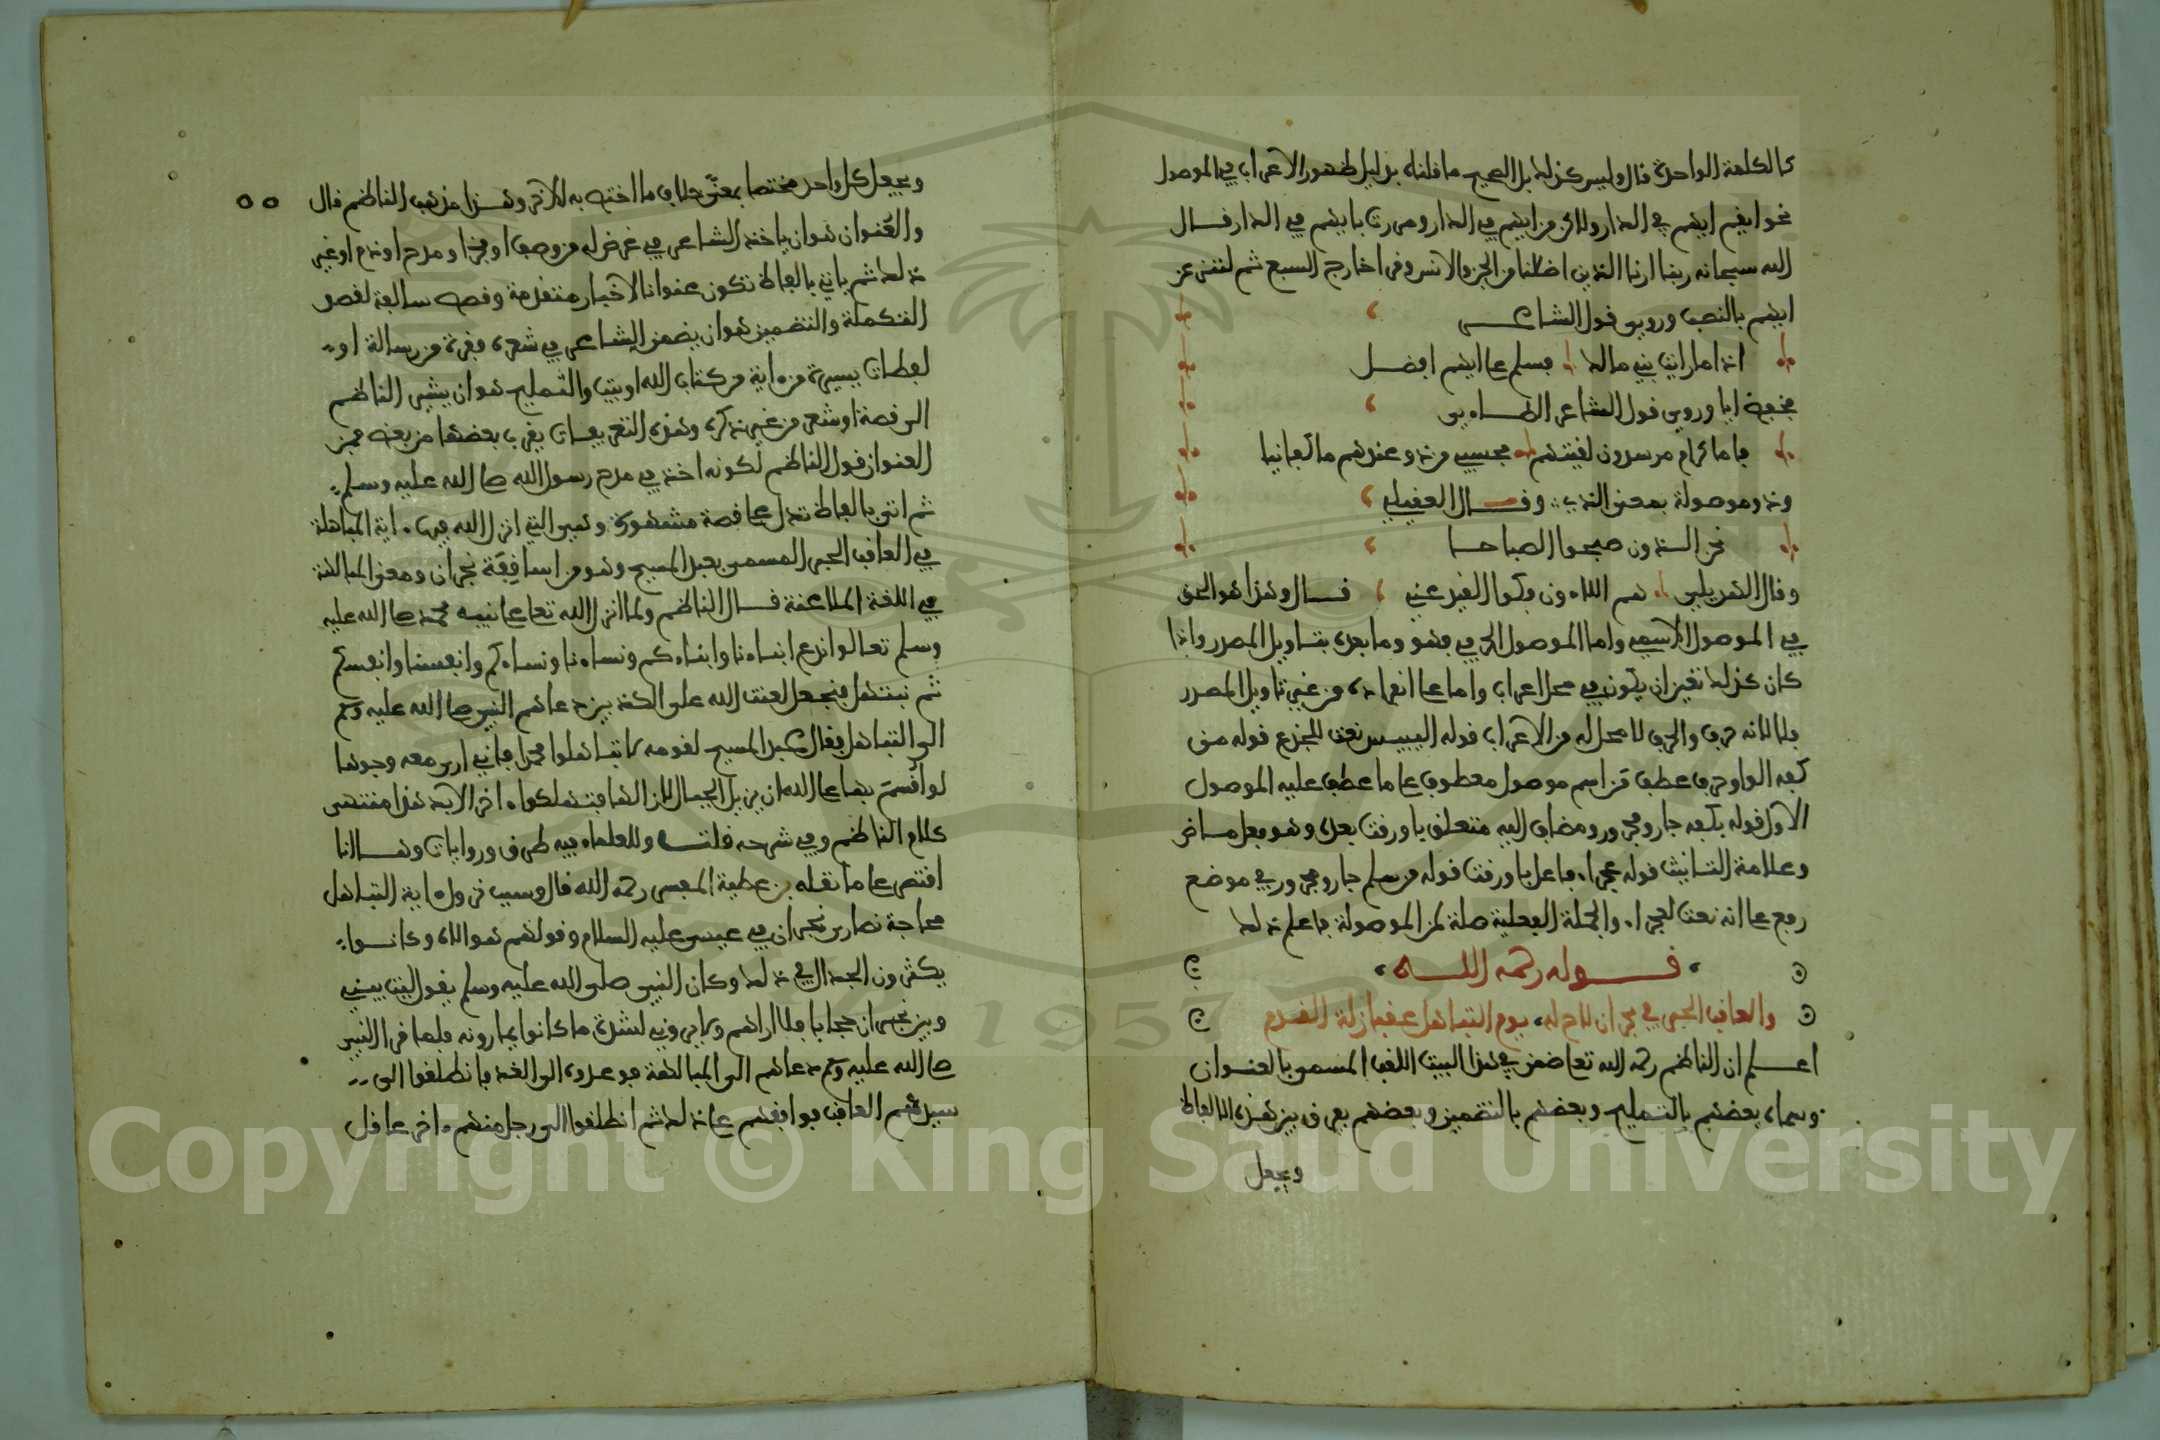 كالكلمة الواحدة قال وليس كذلك بل الصحيح ما قلناه بدليل ظهور الاعراب في الموصول
نحو ايهم في الدار ولاكرمن ايهم في الدار ومررت بايهم في الدار قال
الله سبحانه ربنا ارنا الذين اضلنا من الجن والانس وقرئ خارج السبع ثم لننزعن
ايهم بالنصب وروي قول الشاعر
اذا ما رايت بني مالك فسلم على ايهم افضل
بخفض ايا وروي قول الشاعر الطاءي
فاما كرام موسرون لقيتهم فحسبي من ذو عندهم ما كفانيا
وذو موصولة بمعنى الذي وقال العقيلي
نحن الذون صبحوا الصباحا
وقال الهذيلي هم اللاءون فكوا الغل عني قال وهذا هو الحق
في الموصول الاسمي واما الموصول الحرفي فهو وما بعده بتاويل المصدر واذا
كان كذلك تعين ان يكون في محل اعراب واما على انفراده من غير تاويل المصدر
فلا لانه حرف والحرف لا محل له من الاعراب قوله اليبيس نعت للجذع قوله من
كفه الواو حرف عطف من اسم موصول معطوف على ما عطف عليه الموصول
الاول قوله بكفه جار ومجرور ومضاف اليه متعلق باورقت بعده وهو فعل ماض
وعلامة التانيث قوله عجراء فاعل باورقت قوله من سلم جار ومجرور في موضع
رفع على انه نعت لعجراء والجملة الفعلية صلة لمن الموصولة فاعلم ذلك
قوله رحمه الله
والعاقب الحبر في نجران لاح له يوم التباهل عقبى زلة القدم
اعلم ان الناظم رحمه الله تعالى ضمن في هذا البيت اللقب المسمى بالعنوان
وسماه بعضهم بالتمليح وبعضهم بالتضمين وبعضهم يفرق بين هذه الالفاظ
ويجعل
ويجعل كل واحد مختصا بمعنى خلاف ما اختص به الاخر وهذا مذهب الناظم قال
والعنوان هو ان ياخذ الشاعر في غرض له من وصف او فخر او مدح او ذم او غير
ذلك ثم ياتي بالفاظ تكون عنوانا لاخبار متقدمة وقصص سالفة لقصد
التكملة والتضمين هو ان يضمن الشاعر في شعره فقرة من رسالة او
لفظات يسيرة من ءاية من كتاب الله او بيت والتمليح هو ان يشير الناظم
الى قصة او شعر من غير ذكره وهذه التعريفات يقرب بعضها من بعض فمن
العنوان قول الناظم لكونه اخذ في مدح رسول الله صلى الله عليه وسلم
ثم اتى بالفاظ تدل على قصة مشهورة وهي التي انزل الله فيها ءاية المباهلة
في العاقب الحبر المسمى بعبد المسيح وهو من اساقفة نجران ومعنى المباهلة
في اللغة الملاعنة قال الناظم ولما انزل الله تعالى على نبيه محمد صلى الله عليه
وسلم تعالوا ندع ابناءنا وابناءكم ونساءنا ونساءكم وانفسنا وانفسكم
ثم نبتهل فنجعل لعنت الله على الكذبين دعاهم النبي صلى الله عليه وسلم
الى التباهل فقال عبد المسيح لقومه لا تباهلوا محمدا فاني ارى معه وجوها
لو اقسم بها على الله ان يزيل الجبال لازالها فتهلكوا ءاخر الابد هذا منتهى
كلام الناظم وفي شرحه قلت وللعلماء فيه طرق وروايات وها انا
اقتصر على ما نقله بن عطية المفسر رحمه الله قال وسبب نزول ءاية التباهل
محاجة نصارى نجران في عيسى عليه السلام وقولهم هو الله وكانوا
يكثرون الجدال في ذلك وكان النبي صلى الله عليه وسلم يقول ليت بيني
وبين نجران حجابا فلا اراهم ولا يروني لشدة ما كانوا يمارونه فلما قرا النبي
صلى الله عليه وسلم دعاهم الى المباهلة فوعدوه الى الغد فانطلقوا الى
سيدهم العاقب فوافقهم على ذلك ثم انطلقوا الى رجل منهم ءاخر عاقل
Copyright © King Saud University
1957